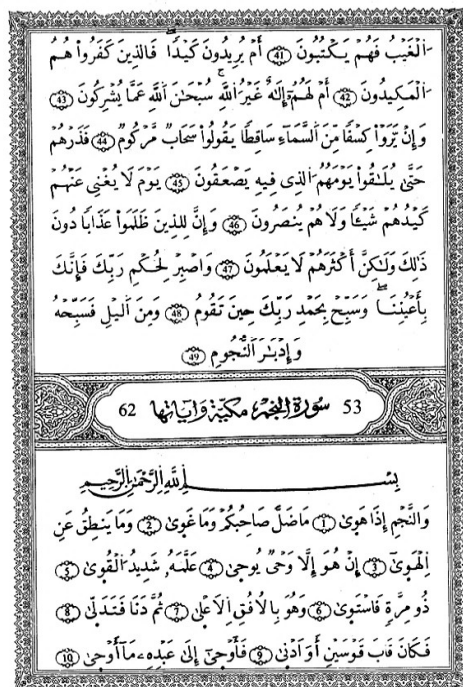 اَلْغَيْبُ فَهُمْ يَكْتُبُونَ 41 أَمْ يُرِيدُونَ كَيْدًا فَالذِينَ كَفَرُوا هُمُ
اَلْمَكِيدُونَ 42 أَمْ لَهُمُۥٓ إِلَٰهٌ غَيْرُ اُللَّهِ سُبْحَٰنَ اَللَّهِ عَمَّا يُشْرِكُونَ 43
وَإِنْ يَّرَوْا كِسْفًا مِّنَ اَلسَّمَآءِ سَاقِطًا يَقُولُوا سَحَابٌ مَّرْكُومٌ 44 فَذَرْهُمْ
حَتَّىٰ يُلَٰقُوا يَوْمَهُمُ اُلذِي فِيهِ يَصْعَقُونَ 45 يَوْمَ لَا يُغْنِي عَنْهُمْ
كَيْدُهُمْ شَيْـًٔا وَلَا هُمْ يُنصَرُونَ 46 وَإِنَّ لِلذِينَ ظَلَمُوا عَذَابًا دُونَ
ذَٰلِكَ وَلَٰكِنَّ أَكْثَرَهُمْ لَا يَعْلَمُونَ 47 وَاصْبِرْ لِحُكْمِ رَبِّكَ فَإِنَّكَ
بِأَعْيُنِنَا وَسَبِّحْ بِحَمْدِ رَبِّكَ حِينَ تَقُومُ 48 وَمِنَ اَلَّيْلِ فَسَبِّحْهُ
وَإِدْبَٰرَ اَلنُّجُومِ 49
53 سورة النجم مكية وآياتها 62
بِسْمِ اِللَّهِ اِلرَّحْمَٰنِ اِلرَّحِيمِ
وَالنَّجْمِ إِذَا هَوَىٰ 1 مَا ضَلَّ صَاحِبُكُمْ وَمَا غَوَىٰ 2 وَمَا يَنطِقُ عَنِ
اِلْهَوَىٰٓ 3 إِنْ هُوَ إِلَّا وَحْيٌ يُوحَىٰ 4 عَلَّمَهُۥ شَدِيدُ اُلْقُوَىٰ 5
ذُو مِرَّةٍ فَاسْتَوَىٰ 6 وَهُوَ بِالْأُفُقِ اِلْأَعْلَىٰ 7 ثُمَّ دَنَا فَتَدَلَّىٰ 8
فَكَانَ قَابَ قَوْسَيْنِ أَوْ أَدْنَىٰ 9 فَأَوْحَىٰٓ إِلَىٰ عَبْدِهِۦ مَآ أَوْحَىٰ 10